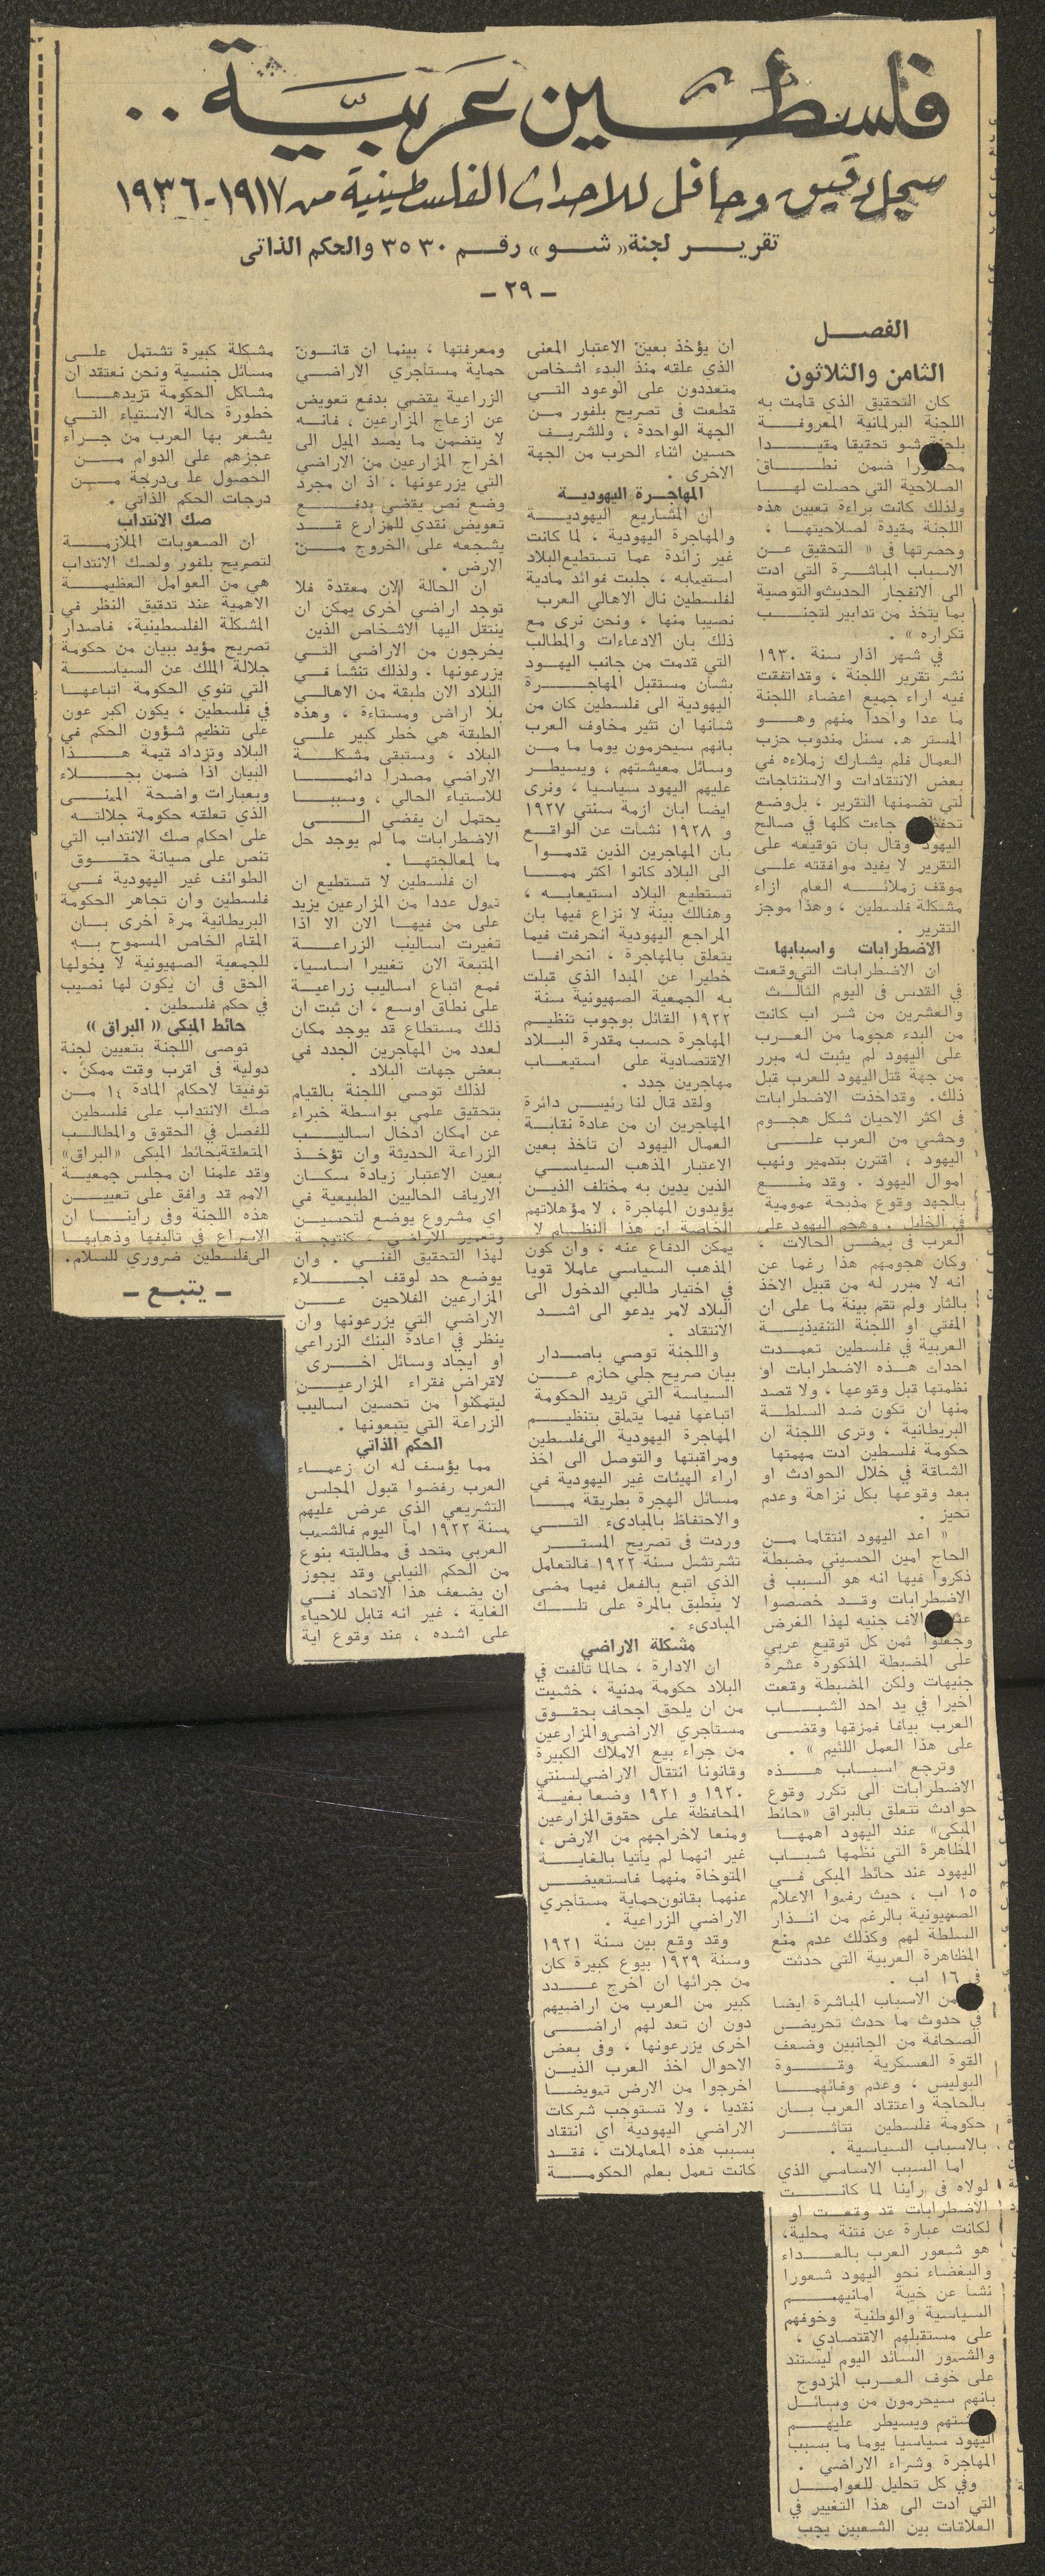 فلسطين عربية ..
سجل دقيق وحافل للاحداث الفلسطينية من ١٩١٧-١٩٣٦
تقرير لجنة « شو » رقم ٣٥٣٠ والحكم الذاتى
- ٢٩ -
الفصل
الثامن والثلاثون
كان التحقيق الذي قامت به
اللجنة البرلمانية المعروفة
بلجنة شو تحقيقا مقيدا
محصورا ضمن نطاق
الصلاحية التي حصلت لها
ولذلك كانت براءة تعيين هذه
اللجنة مقيدة لصلاحيتها ،
وحضرتها فى « التحقيق عن
الاسباب المباشرة التي ادت
الى الانفجار الحديث والتوصية
بما يتخذ من تدابير لتجنب
تكراره » .
في شهر اذار سنة ١٩٣٠
نشر تقرير اللجنة ، وقد اتفقت
فيه اراء جميع اعضاء اللجنة
ما عدا واحدا منهم وهو
المستر هـ. سنل مندوب حزب
العمال فلم يشارك زملاءه في
بعض الانتقادات والاستنتاجات
لتي تضمنها التقرير ، بل وضع
جاءت كلها في صالح
اليهود وقال بان توقيعه على
التقرير لا يفيد موافقته على
موقف زملائه العام ازاء
مشكلة فلسطين ، وهذا موجز
التقرير .
الاضطرابات واسبابها
ان الاضطرابات التي وقعت
في القدس فى اليوم الثالث
والعشرين من شر اب كانت
من البدء هجوما من العرب
على اليهود لم يثبت له مبرر
من جهة قتل اليهود للعرب قبل
ذلك. وقد اخذت الاضطرابات
فى اكثر الاحيان شكل هجوم
وحشي من العرب على
اليهود ، اقترن بتدمير ونهب
اموال اليهود . وقد منع
بالجهد وقوع مذبحة عمومية
في الخليل . وهجم اليهود على
العرب فى بعض الحالات ،
وكان هجومهم هذا رغما عن
انه لا مبرر له من قبيل الاخذ
بالثار ولم تقم بينة ما على ان
المفتي او اللجنة التنفيذية
العربية في فلسطين تعمدت
احداث هذه الاضطرابات او
نظمتها قبل وقوعها ، ولا قصد
منها ان تكون ضد السلطة
البريطانية ، وترى اللجنة ان
حكومة فلسطين ادت مهمتها
الشاقة في خلال الحوادث او
بعد وقوعها بكل نزاهة وعدم
تحيز .
« اعد اليهود انتقاما من
الحاج امين الحسيني مضبطة
ذكروا فيها انه هو السبب فى
الاضطرابات وقد خصصوا
الاف جنيه لهذا الغرض
وجعلوا ثمن كل توقيع عربي
على المضبطة المذكورة عشرة
جنيهات ولكن المضبطة وقعت
اخيرا في يد احد الشباب
العرب بيافا فمزقها وقضى
على هذا العمل اللئيم » .
وترجع اسباب هذه
الاضطرابات الى تكرر وقوع
حوادث تتعلق بالبراق «حائط
المبكى» عند اليهود اهمها
المظاهرة التي نظمها شباب
اليهود عند حائط المبكى في
١٥ اب ، حيث رفعوا الاعلام
الصهيونية بالرغم من انذار
السلطة لهم وكذلك عدم منع
المظاهرة العربية التي حدثت
في ١٦ اب .
من الاسباب المباشرة ايضا
في حدوث ما حدث تحريض
الصحافة من الجانبين وضعف
القوة العسكرية وقوة
البوليس ، وعدم وفائهما
بالحاجة واعتقاد العرب بان
حكومة فلسطين تتاثر
بالاسباب السياسية .
اما السبب الاساسي الذي
لولاه فى راينا لما كانت
الاضطرابات قد وقعت او
لكانت عبارة عن فتنة محلية،
هو شعور العرب بالعداء
والبغضاء نحو اليهود شعورا
نشا عن خيبة امانيهم
السياسية والوطنية وخوفهم
على مستقبلهم الاقتصادي ،
والشعور السائد اليوم ليستند
على خوف العرب المزدوج
بانهم سيحرمون من وسائل
ويسيطر عليهم
اليهود سياسيا يوما ما بسبب
المهاجرة وشراء الاراضي .
وفي كل تحليل للعوامل
التي ادت الى هذا التغيير في
العلاقات بين الشعبين يجب
ان يؤخذ بعين الاعتبار المعنى
الذي علقه منذ البدء اشخاص
متعددون على الوعود التي
قطعت فى تصريح بلفور من
الجهة الواحدة ، وللشريف
حسين اثناء الحرب من الجهة
الاخرى .
المهاجرة اليهودية
ان المشاريع اليهودية
والمهاجرة اليهودية ، لما كانت
غير زائدة عما تستطيع البلاد
استيعابه ، جلبت فوائد مادية
لفلسطين نال الاهالي العرب
نصيبا منها ، ونحن نرى مع
ذلك بان الادعاءات والمطالب
التي قدمت من جانب اليهود
بشان مستقبل المهاجرة
اليهودية الى فلسطين كان من
شانها ان تثير مخاوف العرب
بانهم سيحرمون يوما ما من
وسائل معيشتهم ، ويسيطر
عليهم اليهود سياسيا ، ونرى
ايضا ابان ازمة سنتي ١٩٢٧
و ١٩٢٨ نشات عن الواقع
بان المهاجرين الذين قدموا
الى البلاد كانوا اكثر مما
تستطيع البلاد استيعابه ،
وهنالك بينة لا نزاع فيها بان
المراجع اليهودية انحرفت فيما
يتعلق بالمهاجرة ، انحرافا
خطيرا عن المبدا الذي قبلت
به الجمعية الصهيونية سنة
١٩٢٢ القائل بوجوب تنظيم
المهاجرة حسب مقدرة البلاد
الاقتصادية على استيعاب
مهاجرين جدد .
ولقد قال لنا رئيس دائرة
المهاجرين ان من عادة نقابة
العمال اليهود ان تاخذ بعين
الاعتبار المذهب السياسي
الذين يدين به مختلف الذين
يؤيدون المهاجرة ، لا مؤهلاتهم
الخاصة ان هذا النظام لا
يمكن الدفاع عنه ، وان كون
المذهب السياسي عاملا قويا
في اختيار طالبي الدخول الى
البلاد لامر يدعو الى اشد
الانتقاد .
واللجنة توصي باصدار
بيان صريح جلي حازم عن
السياسة التي تريد الحكومة
اتباعها فيما يتعلق بتنظيم
المهاجرة اليهودية الى فلسطين
ومراقبتها والتوصل الى اخذ
اراء الهيئات غير اليهودية في
مسائل الهجرة بطريقة ما
والاحتفاظ بالمبادىء التي
وردت فى تصريح المستر
تشرتشل سنة ١٩٢٢ فالتعامل
الذي اتبع بالفعل فيما مضى
لا ينطبق بالمرة على تلك
المبادىء .
مشكلة الاراضي
ان الادارة ، حالما تالفت في
البلاد حكومة مدنية ، خشيت
من ان يلحق اجحاف بحقوق
مستاجري الاراضي والمزارعين
من جراء بيع الاملاك الكبيرة
وقانونا انتقال الاراضي لسنتي
١٩٢٠ و ١٩٢١ وضعا بغية
المحافظة على حقوق المزارعين
ومنعا لاخراجهم من الارض ،
غير انهما لم ياتيا بالغاية
المتوخاة منهما فاستعيض
عنهما بقانون حماية مستاجري
الاراضي الزراعية .
وقد وقع بين سنة ١٩٢١
وسنة ١٩٢٩ بيوع كبيرة كان
من جرائها ان اخرج عدد
كبير من العرب من اراضيهم
دون ان تعد لهم اراضى
اخرى يزرعونها ، وفى بعض
الاحوال اخذ العرب الذين
اخرجوا من الارض تعويضا
نقديا ، ولا تستوجب شركات
الاراضي اليهودية اي انتقاد
بسبب هذه المعاملات ، فقد
كانت تعمل بعلم الحكومة
ومعرفتها ، بينما ان قانون
حماية مستاجري الاراضي
الزراعية يقضي بدفع تعويض
عن ازعاج المزارعين ، فانه
لا يتضمن ما يصد الميل الى
اخراج المزارعين من الاراضي
التي يزرعونها ، اذ ان مجرد
وضع نص يقضي بدفع
تعويض نقدي للمزارع قد
يشجعه على الخروج من
الارض .
ان الحالة الان معقدة فلا
توجد اراضي اخرى يمكن ان
ينتقل اليها الاشخاص الذين
يخرجون من الاراضي التي
يزرعونها ، ولذلك تنشا في
البلاد الان طبقة من الاهالي
بلا اراض ومستاءة ، وهذه
الطبقة هي خطر كبير على
البلاد ، وستبقى مشكلة
الاراضي مصدرا دائما
للاستياء الحالي ، وسببا
يحتمل ان يفضي الى
الاضطرابات ما لم يوجد حل
ما لمعالجتها .
ان فلسطين لا تستطيع ان
تعول عددا من المزارعين يزيد
على من فيها الان الا اذا
تغيرت اساليب الزراعة
المتبعة الان تغييرا اساسيا،
فمع اتباع اساليب زراعية
على نطاق اوسع ، ان ثبت ان
ذلك مستطاع قد يوجد مكان
لعدد من المهاجرين الجدد في
بعض جهات البلاد .
لذلك توصي اللجنة بالقيام
بتحقيق علمي بواسطة خبراء
عن امكان ادخال اساليب
الزراعة الحديثة وان تؤخذ
بعين الاعتبار زيادة سكان
الارياف الحاليين الطبيعية في
اي مشروع يوضع لتحسين
وتعمير الاراضي ، كنتيجة
لهذا التحقيق الفني . وان
يوضع حد لوقف اجلاء
المزارعين الفلاحين عن
الاراضي التي يزرعونها وان
ينظر في اعادة البنك الزراعي
او ايجاد وسائل اخرى
لاقراض فقراء المزارعين
ليتمكنوا من تحسين اساليب
الزراعة التي يتبعونها .
الحكم الذاتي
مما يؤسف له ان زعماء
العرب رفضوا قبول المجلس
التشريعي الذي عرض عليهم
سنة ١٩٢٢ اما اليوم فالشعب
العربي متحد فى مطالبته بنوع
من الحكم النيابي وقد يجوز
ان يضعف هذا الاتحاد في
الغاية ، غير انه قابل للاحياء
على اشده ، عند وقوع اية
مشكلة كبيرة تشتمل على
مسائل جنسية ونحن نعتقد ان
مشاكل الحكومة تزيدها
خطورة حالة الاستياء التي
يشعر بها العرب من جراء
عجزهم على الدوام من
الحصول على درجة من
درجات الحكم الذاتي .
صك الانتداب
ان الصعوبات الملازمة
لتصريح بلفور ولصك الانتداب
هي من العوامل العظيمة
الاهمية عند تدقيق النظر في
المشكلة الفلسطينية، فاصدار
تصريح مؤيد ببيان من حكومة
جلالة الملك عن السياسة
التي تنوي الحكومة اتباعها
في فلسطين ، يكون اكبر عون
على تنظيم شؤون الحكم في
البلاد وتزداد قيمة هذا
البيان اذا ضمن بجلاء
وبعبارات واضحة المعنى
الذي تعلقه حكومة جلالته
على احكام صك الانتداب التي
تنص على صيانة حقوق
الطوائف غير اليهودية في
فلسطين وان تجاهر الحكومة
البريطانية مرة اخرى بان
المقام الخاص المسموح به
للجمعية الصهيونية لا يخولها
الحق فى ان يكون لها نصيب
في حكم فلسطين .
حائط المبكى « البراق »
توصى اللجنة بتعيين لجنة
دولية فى اقرب وقت ممكن ،
توفيقا لاحكام المادة ١٤ من
صك الانتداب على فلسطين
للفصل في الحقوق والمطالب
المتعلقة بحائط المبكى «البراق»
وقد علمنا ان مجلس جمعية
الامم قد وافق على تعيين
هذه اللجنة وفى راينا ان
الاسراع في تاليفها وذهابها
الى فلسطين ضروري للسلام.
- يتبع -